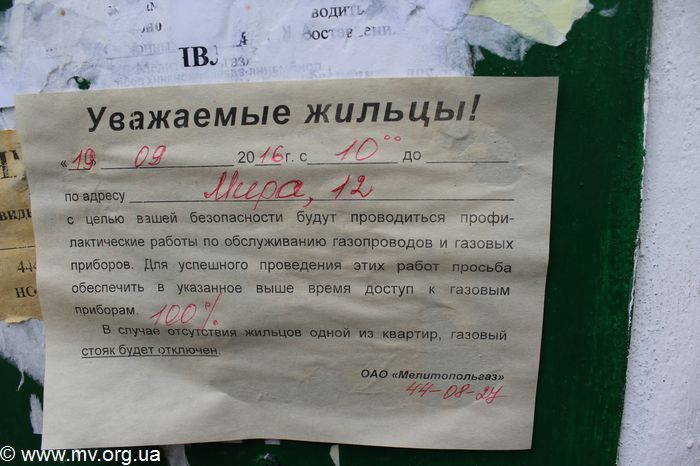 водить
ІВ
Уважаемые жильцы!
«19» 09 2016 г. с 10 00 до
по адресу Мира, 12
с целью вашей безопасности будут проводиться профи-
лактические работы по обслуживанию газопроводов и газовых
приборов. Для успешного проведения этих работ просьба
обеспечить в указанное выше время доступ к газовым
приборам. 100%
В случае отсутствия жильцов одной из квартир, газовый
стояк будет отключен.
ОАО «Мелитопольгаз»
44-08-27
© www.mv.org.ua